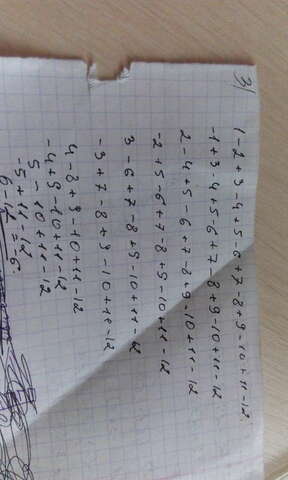 3) 1-2+3-4+5-6+7-8+9-10+11-12
-1+3-4+5-6+7-8+9-10+11-12
2-4+5-6+7-8+9-10+11-12
-2+5-6+7-8+9-10+11-12
3-6+7-8+9-10+11-12
-3+7-8+9-10+11-12
4-8+9-10+11-12
-4+9-10+11-12
5-10+11-12
-5+11-12
6-12=-6